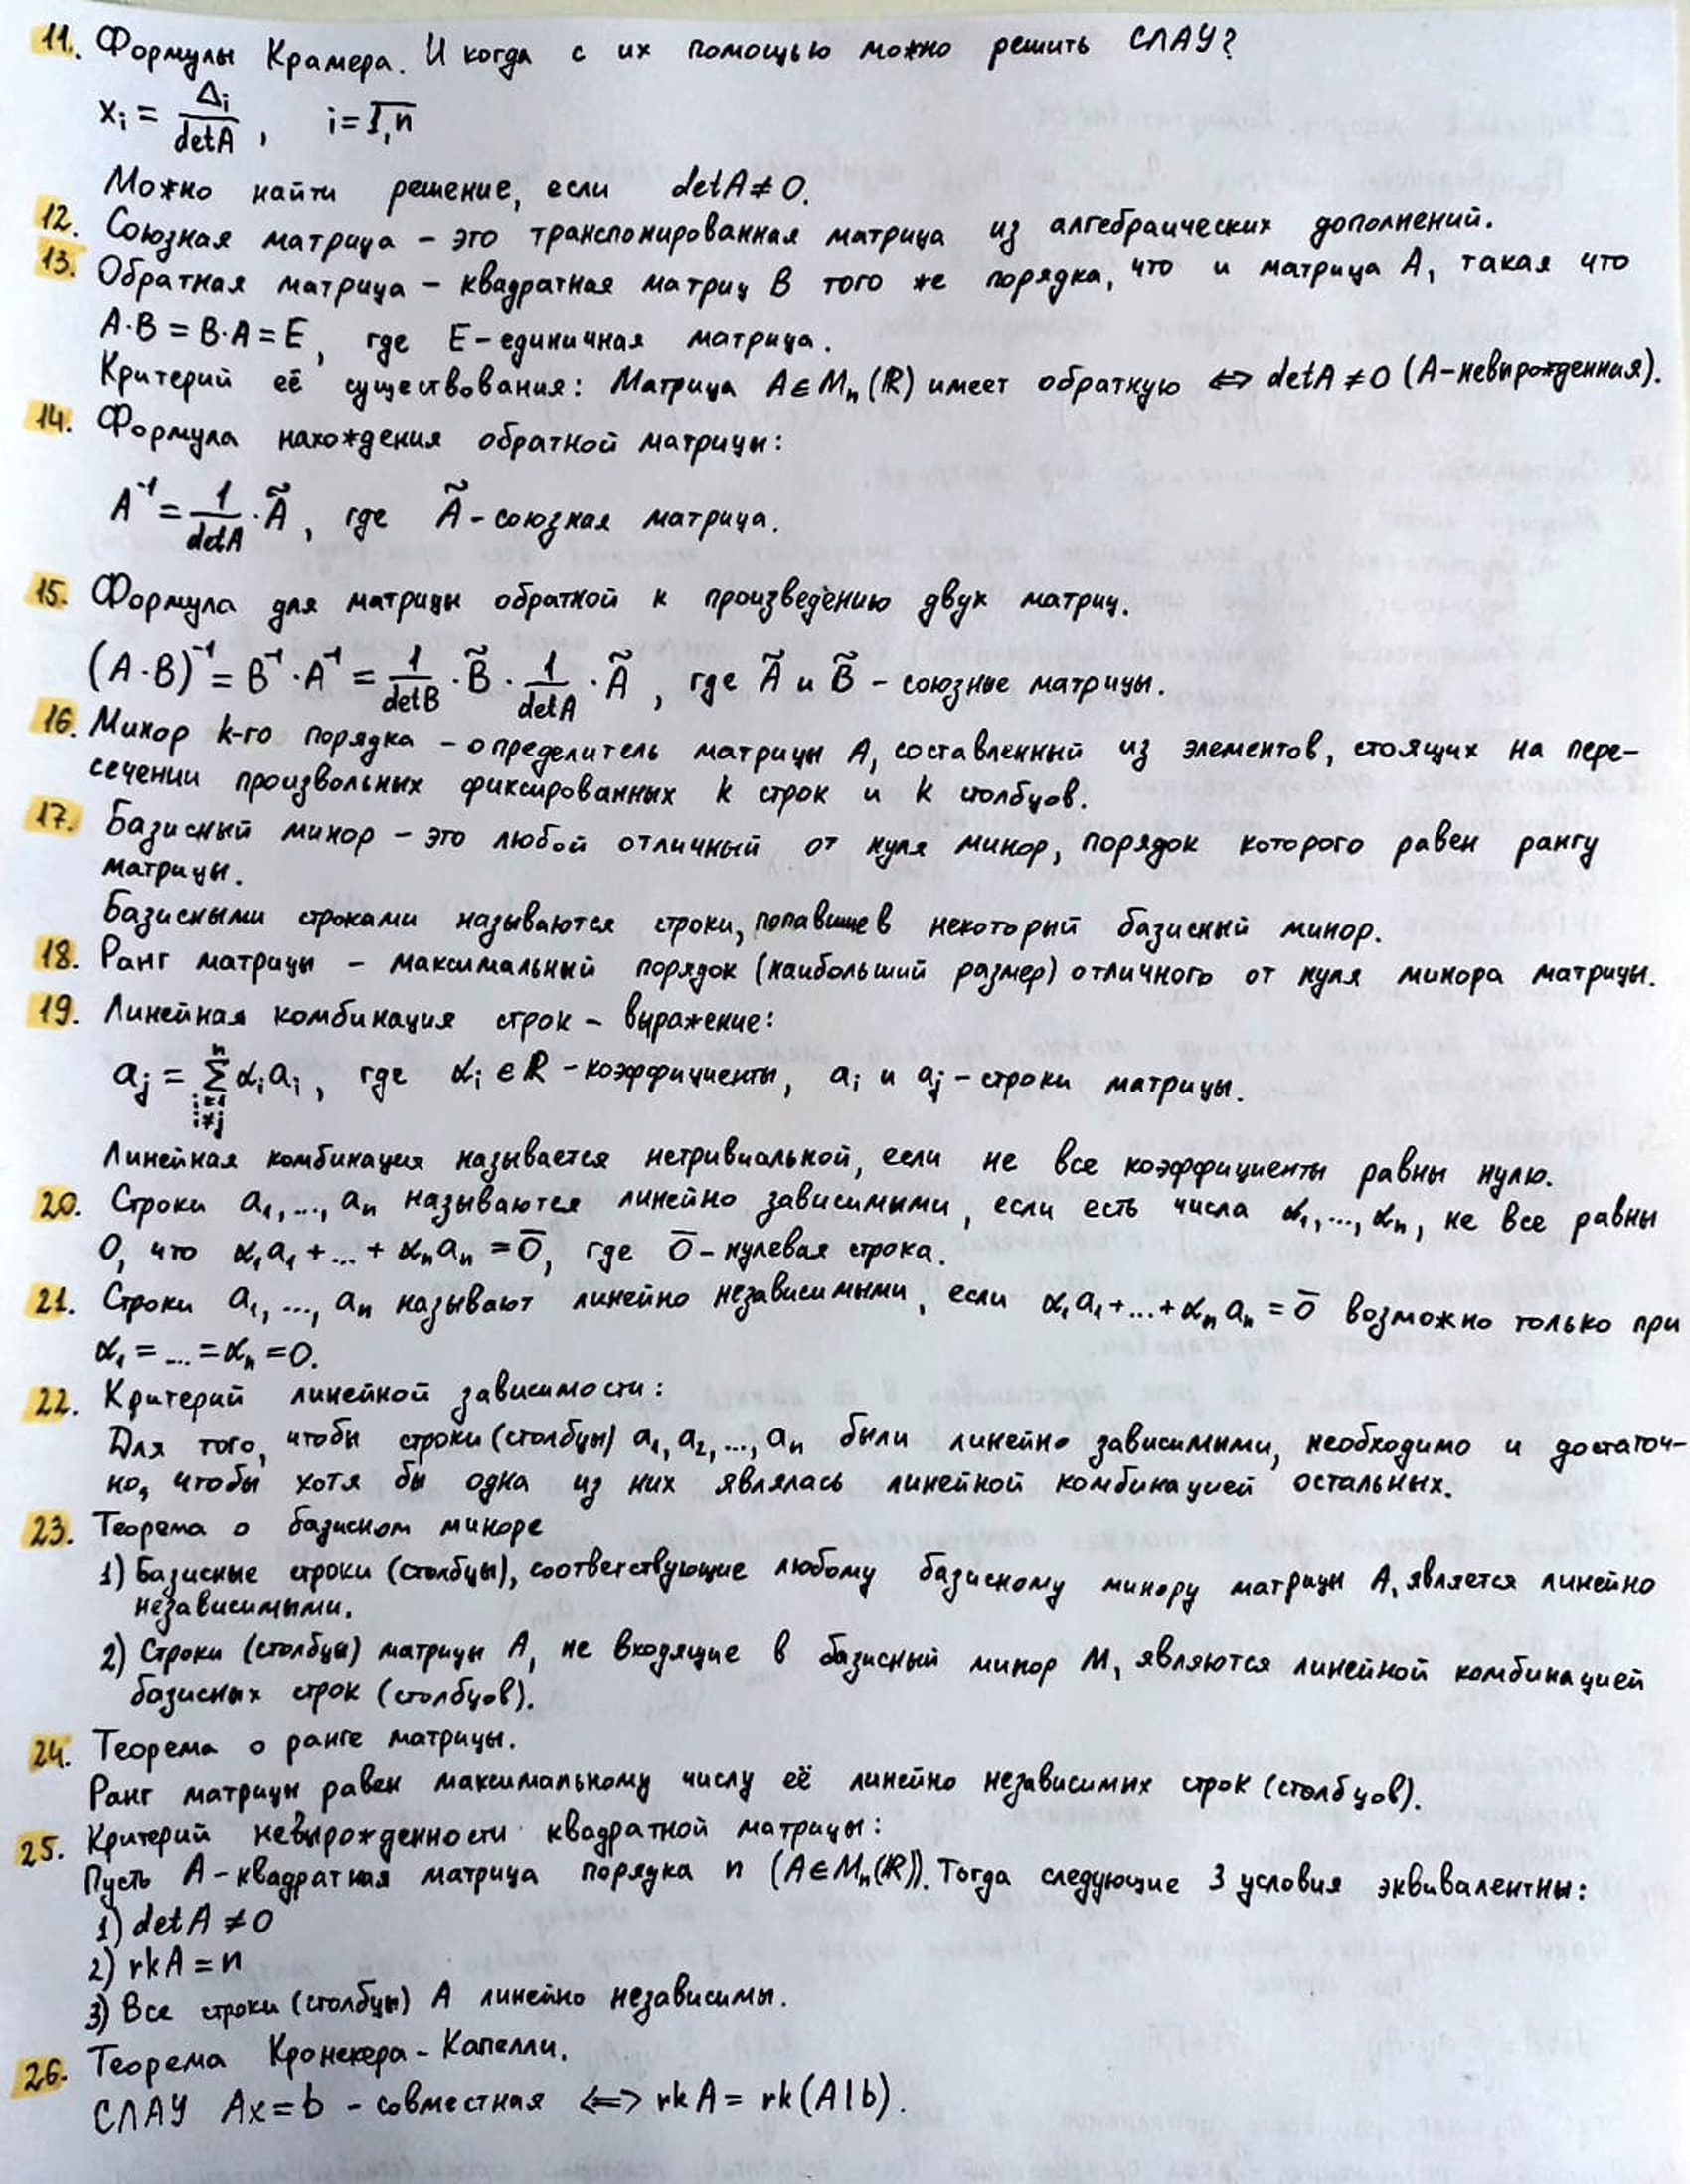 11. Формулы Крамера. И когда с их помощью можно решить СЛАУ?
xᵢ = Δᵢ / detA , i = 1,n
Можно найти решение, если detA ≠ 0.
12. Союзная матрица – это транспонированная матрица из алгебраических дополнений.
13. Обратная матрица – квадратная матриц B того же порядка, что и матрица A, такая что
A·B = B·A = E, где E – единичная матрица.
Критерий её существования: Матрица A∈Mₙ(ℝ) имеет обратную ⇔ detA ≠ 0 (A-невырожденная).
14. Формула нахождения обратной матрицы:
A⁻¹ = 1/detA · Ã, где Ã - союзная матрица.
15. Формула для матрицы обратной к произведению двух матриц.
(A·B)⁻¹ = B⁻¹·A⁻¹ = 1/detB · B̃ · 1/detA · Ã, где Ã и B̃ – союзные матрицы.
16. Минор k-го порядка – определитель матрицы A, составленный из элементов, стоящих на пере-
сечении произвольных фиксированных k строк и k столбцов.
17. Базисный минор – это любой отличный от нуля минор, порядок которого равен рангу
матрицы.
Базисными строками называются строки, попавшие в некоторый базисный минор.
18. Ранг матрицы – максимальный порядок (наибольший размер) отличного от нуля минора матрицы.
19. Линейная комбинация строк – выражение:
aⱼ = Σ (i=1, i≠j; n) αᵢaᵢ, где αᵢ∈ℝ – коэффициенты, aᵢ и aⱼ – строки матрицы.
Линейная комбинация называется нетривиальной, если не все коэффициенты равны нулю.
20. Строки a₁,...,aₙ называются линейно зависимыми, если есть числа α₁,...,αₙ, не все равны
0, что α₁a₁+...+αₙaₙ = 0̄, где 0̄ – нулевая строка.
21. Строки a₁,...,aₙ называют линейно независимыми, если α₁a₁+...+αₙaₙ = 0̄ возможно только при
α₁ = ... = αₙ = 0.
22. Критерий линейной зависимости:
Для того, чтобы строки (столбцы) a₁, a₂, ..., aₙ были линейно зависимыми, необходимо и достаточ-
но, чтобы хотя бы одна из них являлась линейной комбинацией остальных.
23. Теорема о базисном миноре
1) Базисные строки (столбцы), соответствующие любому базисному минору матрицы A, является линейно
независимыми.
2) Строки (столбцы) матрицы A, не входящие в базисный минор M, являются линейной комбинацией
базисных строк (столбцов).
24. Теорема о ранге матрицы.
Ранг матрицы равен максимальному числу её линейно независимых строк (столбцов).
25. Критерий невырожденности квадратной матрицы:
Пусть A – квадратная матрица порядка n (A∈Mₙ(ℝ)). Тогда следующие 3 условия эквивалентны:
1) detA ≠ 0
2) rkA = n
3) Все строки (столбцы) A линейно независимы.
26. Теорема Кронекера – Капелли.
СЛАУ Ax = b – совместная ⇔ rkA = rk(A|b).